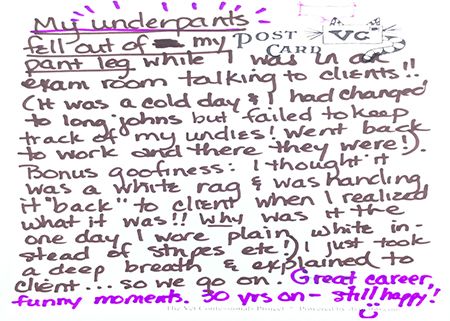 My underpants
fell out of my
POST CARD
VC
pant leg while I was in an
exam room talking to clients!!
(It was a cold day & I had changed
to long johns but failed to keep
track of my undies! Went back
to work and there they were!).
Bonus goofiness: I thought it
was a white rag & was handing
it "back" to client when I realized
what it was!! Why was it the
one day I wore plain white in-
stead of stripes etc!) I just took
a deep breath & explained to
client... so we go on. Great career,
funny moments. 30 yrs on - still happy!
The Vet Confessionals Project